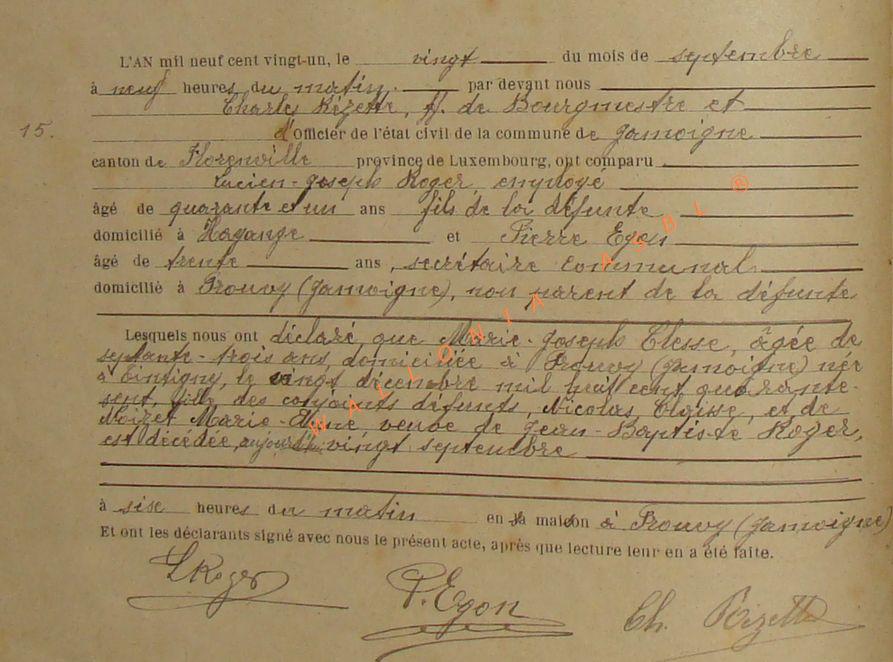 L'AN mil neuf cent vingt-un, le vingt du mois de septembre
à neuf heures du matin par devant nous
Charles Rézette, ff. de Bourgmestre et
15.
d'Officier de l'état civil de la commune de Jamoigne
canton de Florenville province de Luxembourg, ont comparu
Lucien-Joseph Roger, employé
âgé de quarante et un ans fils de la défunte
domicilié à Hagange et Pierre Egon
âgé de trente ans, secrétaire communal
domicilié à Prouvy (Jamoigne), non parent de la défunte
Lesquels nous ont déclaré que Marie-Joseph Clesse, âgée de
septante-trois ans, domiciliée à Prouvy (Jamoigne) née
à Tintigny, le vingt décembre mil huit cent quarante-
sept, fille des conjoints défunts, Nicolas Claisse, et de
Noizet Marie- veuve de Jean-Baptiste Roger,
est décédée, aujourd'hui vingt septembre
à sise heures du matin en sa maison à Prouvy (Jamoigne)
Et ont les déclarants signé avec nous le présent acte, après que lecture leur en a été faite.
L Roger
P. Egon
Ch. Rézette
WALLONIA ASBL ®